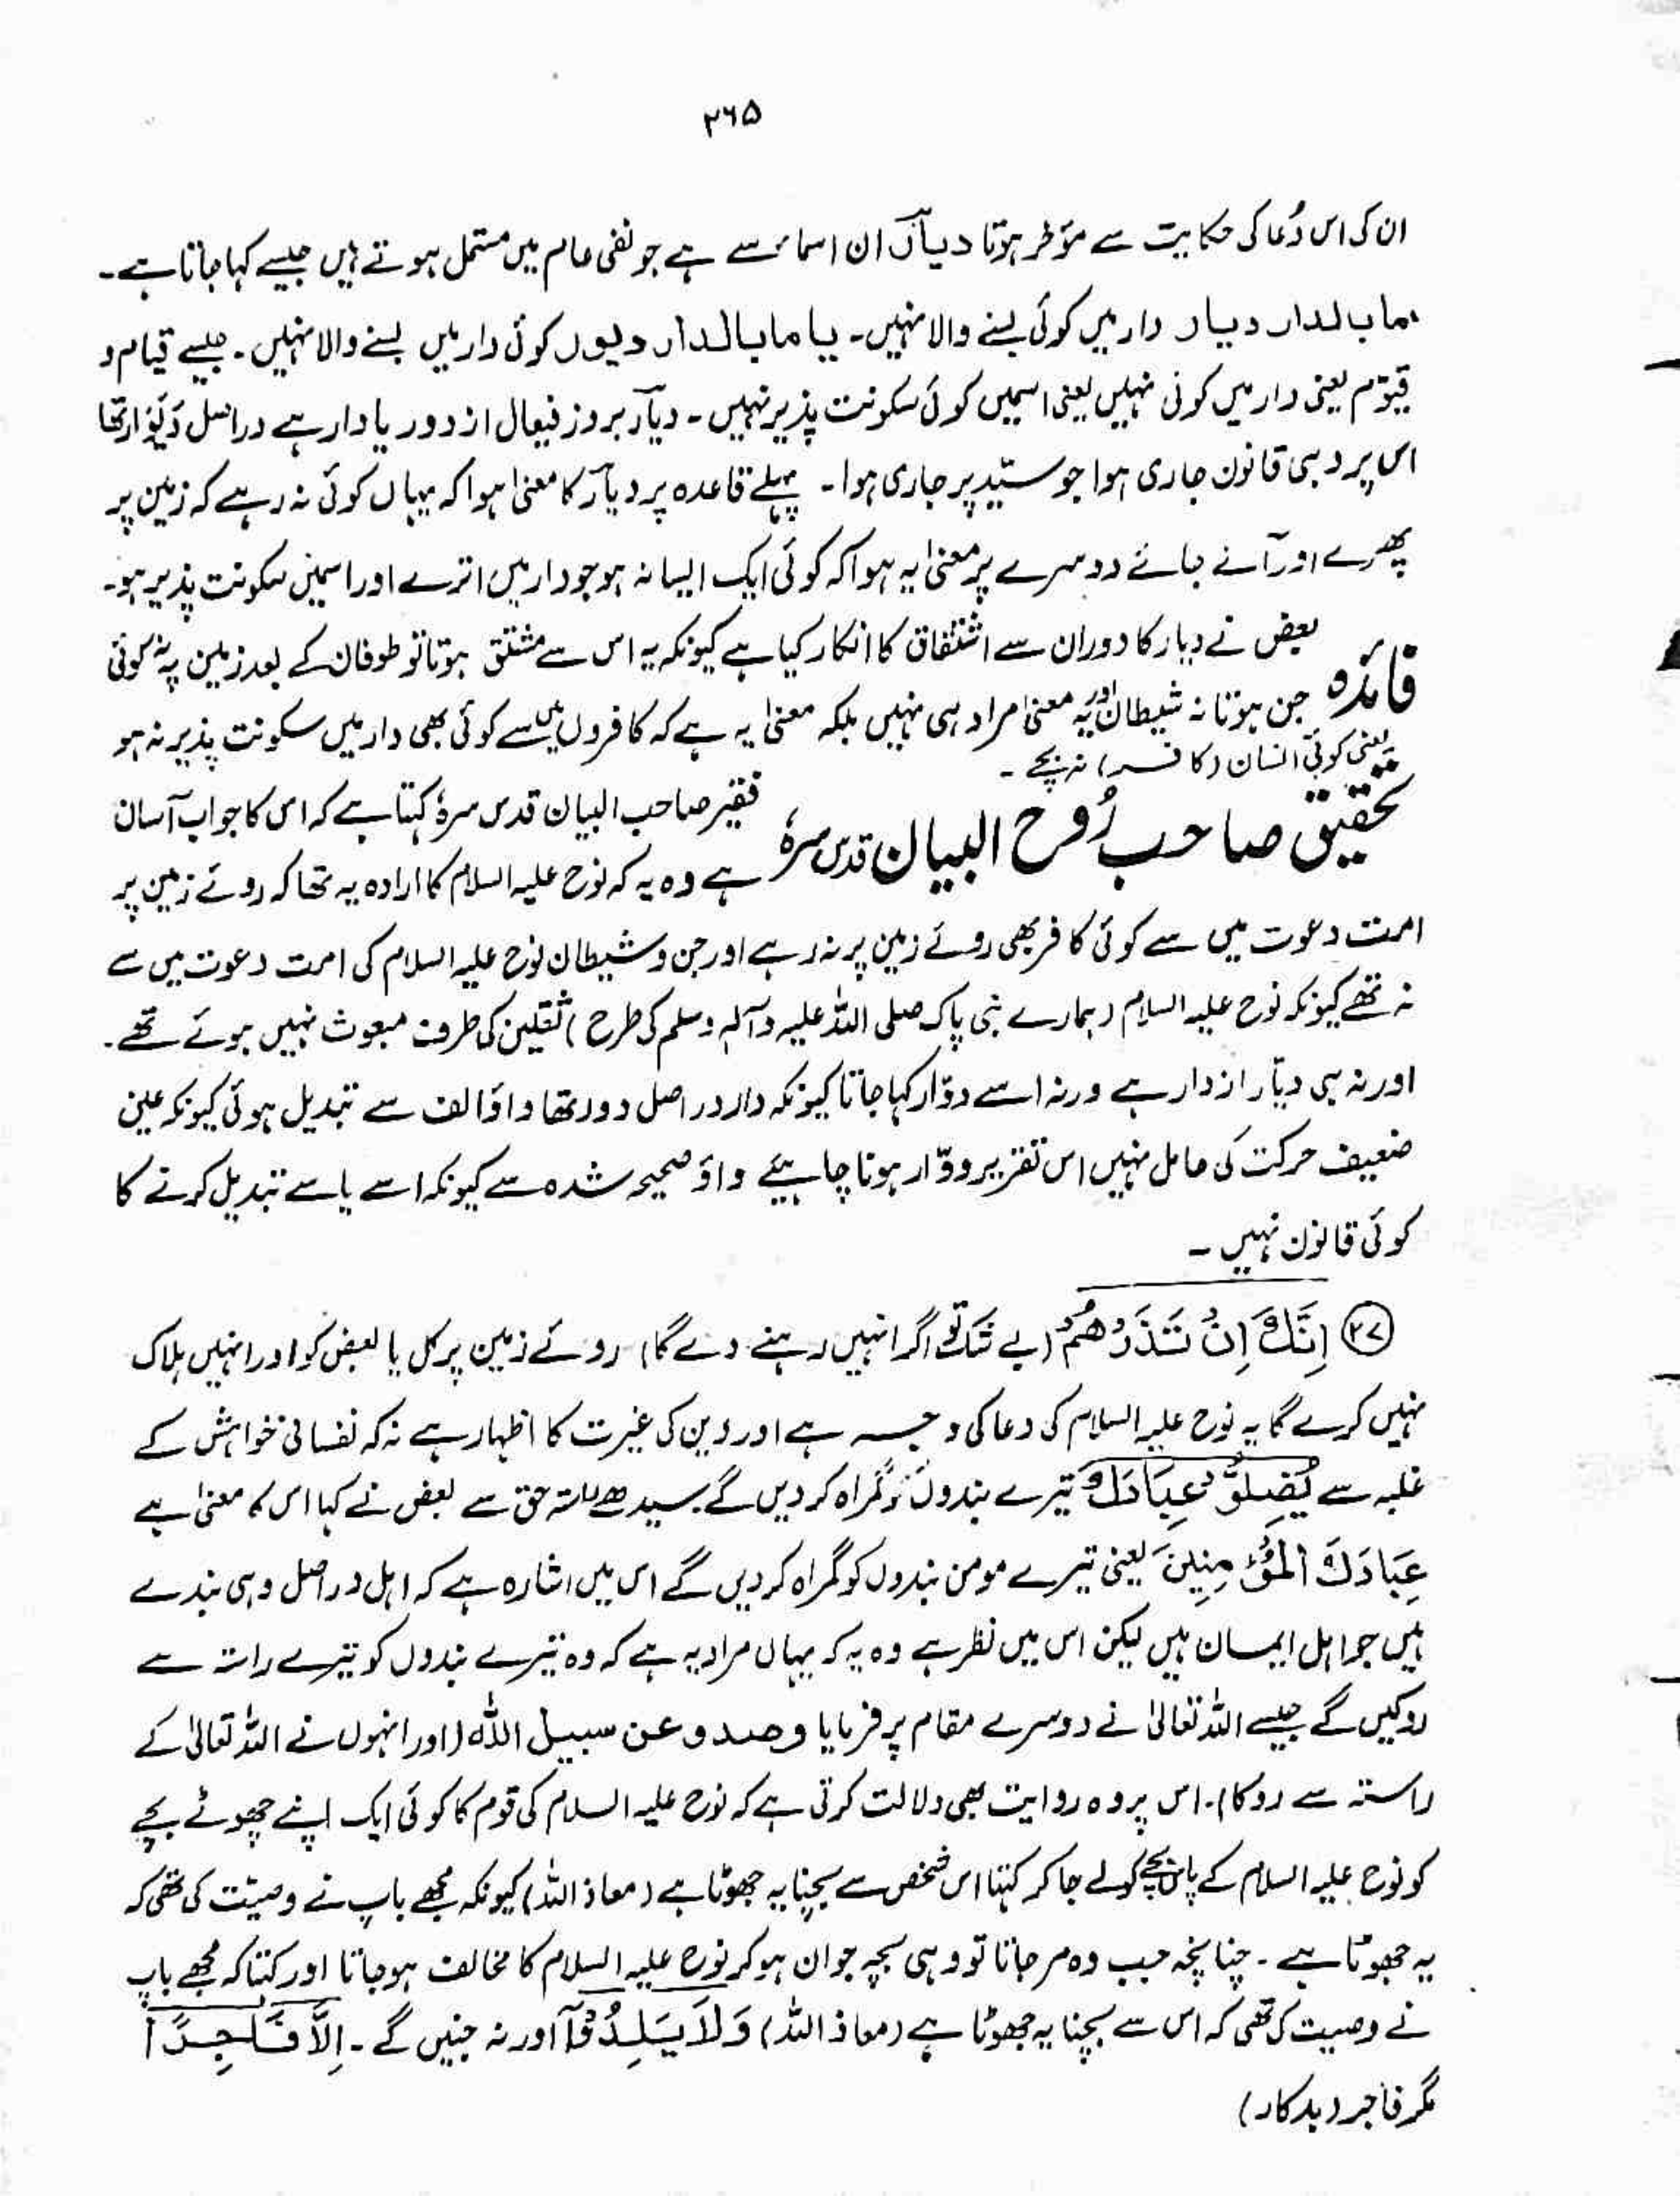 ۲۶۵
ان کی اس دُعا کی حکایت سے مؤخر ہوتا دیّار ان اسماء سے ہے جو نفی عام میں مستعمل ہوتے ہیں جیسے کہا جاتا ہے۔
ما بالدار دیار دار میں کوئی بسنے والا نہیں۔ یا ما بالدار دیور کوئی دار میں بسنے والا نہیں۔ جیسے قیام و
قیّوم یعنی دار میں کوئی نہیں یعنی اسمیں کوئی سکونت پذیر نہیں۔ دیّار بروز فیعال از دور یا دار ہے دراصل دَیْوَار تھا
اس پر وہی قانون جاری ہوا جو سیّد پر جاری ہوا۔ پہلے قاعدہ پر دیّار کا معنیٰ ہوا کہ یہاں کوئی نہ رہے کہ زمین پر
پھرے اور آئے جائے دوسرے پر معنیٰ یہ ہوا کہ کوئی ایک ایسا نہ ہو جو دار میں اترے اور اسمیں سکونت پذیر ہو۔
فائدہ بعض نے دیار کا دوران سے اشتقاق کا انکار کیا ہے کیونکہ یہ اس سے مشتق ہوتا تو طوفان کے بعد زمین پہ نہ کوئی
جن ہوتا نہ شیطان اور یہ معنیٰ مراد ہی نہیں بلکہ معنیٰ یہ ہے کہ کافروں میں سے کوئی بھی دار میں سکونت پذیر نہ ہو
یعنی کوئی انسان (کافر) نہ بچے۔
تحقیق صاحب رُوح البیان قدس سرہٗ فقیر صاحب البیان قدس سرہٗ کہتا ہے کہ اس کا جواب آسان
ہے وہ یہ کہ نوح علیہ السلام کا ارادہ یہ تھا کہ روئے زمین پر
امت دعوت میں سے کوئی کافر بھی روئے زمین پر نہ رہے اور جن و شیطان نوح علیہ السلام کی امت دعوت میں سے
نہ تھے کیونکہ نوح علیہ السلام (ہمارے نبی پاک صلی اللہ علیہ وآلہ وسلم کی طرح) ثقلین کی طرف مبعوث نہیں ہوئے تھے۔
اور نہ ہی دیّار از دار ہے ورنہ اسے دوّار کہا جاتا کیونکہ دار دراصل دور تھا واؤ الف سے تبدیل ہوئی کیونکہ عین
ضعیف حرکت کی حامل نہیں اس تقریر دوّار ہونا چاہیئے واؤ صحیحہ شدہ سے کیونکہ اسے یا سے تبدیل کرنے کا
کوئی قانون نہیں۔
۲۷ اِنَّكَ اِنْ تَذَرْهُمْ (بے شک تو اگر انہیں رہنے دے گا) روئے زمین پر کل یا بعض کو اور انہیں ہلاک
نہیں کرے گا یہ نوح علیہ السلام کی دعا کی وجہ ہے اور دین کی غیرت کا اظہار ہے نہ کہ نفسانی خواہش کے
غلبہ سے يُضِلُّوْ عِبَادَكَ تیرے بندوں کو گمراہ کر دیں گے سیدھے راستہ حق سے بعض نے کہا اس کا معنیٰ ہے
عِبَادَكَ الْمُؤْمِنِيْنَ یعنی تیرے مومن بندوں کو گمراہ کر دیں گے اس میں اشارہ ہے کہ اہل دراصل وہی بندے
ہیں جو اہل ایمان ہیں لیکن اس میں نظر ہے وہ یہ کہ یہاں مراد یہ ہے کہ وہ تیرے بندوں کو تیرے راستہ سے
روکیں گے جیسے اللہ تعالیٰ نے دوسرے مقام پر فرمایا وصدو عن سبیل اللہ (اور انہوں نے اللہ تعالیٰ کے
راستہ سے روکا)۔ اس پر وہ روایت بھی دلالت کرتی ہے کہ نوح علیہ السلام کی قوم کا کوئی ایک اپنے چھوٹے بچے
کو نوح علیہ السلام کے پاس بچے کو لے جا کر کہتا اس شخص سے بچنا یہ جھوٹا ہے (معاذ اللہ) کیونکہ مجھے باپ نے وصیّت کی تھی کہ
یہ جھوٹا ہے۔ چنانچہ جب وہ مر جاتا تو وہی بچہ جوان ہو کر نوح علیہ السلام کا مخالف ہو جاتا اور کہتا کہ مجھے باپ
نے وصیت کی تھی کہ اس سے بچنا یہ جھوٹا ہے (معاذ اللہ) وَلَا يَلِدُوْۤا اور نہ جنیں گے۔ اِلَّا فَاجِرًا
مگر فاجر (بدکار)